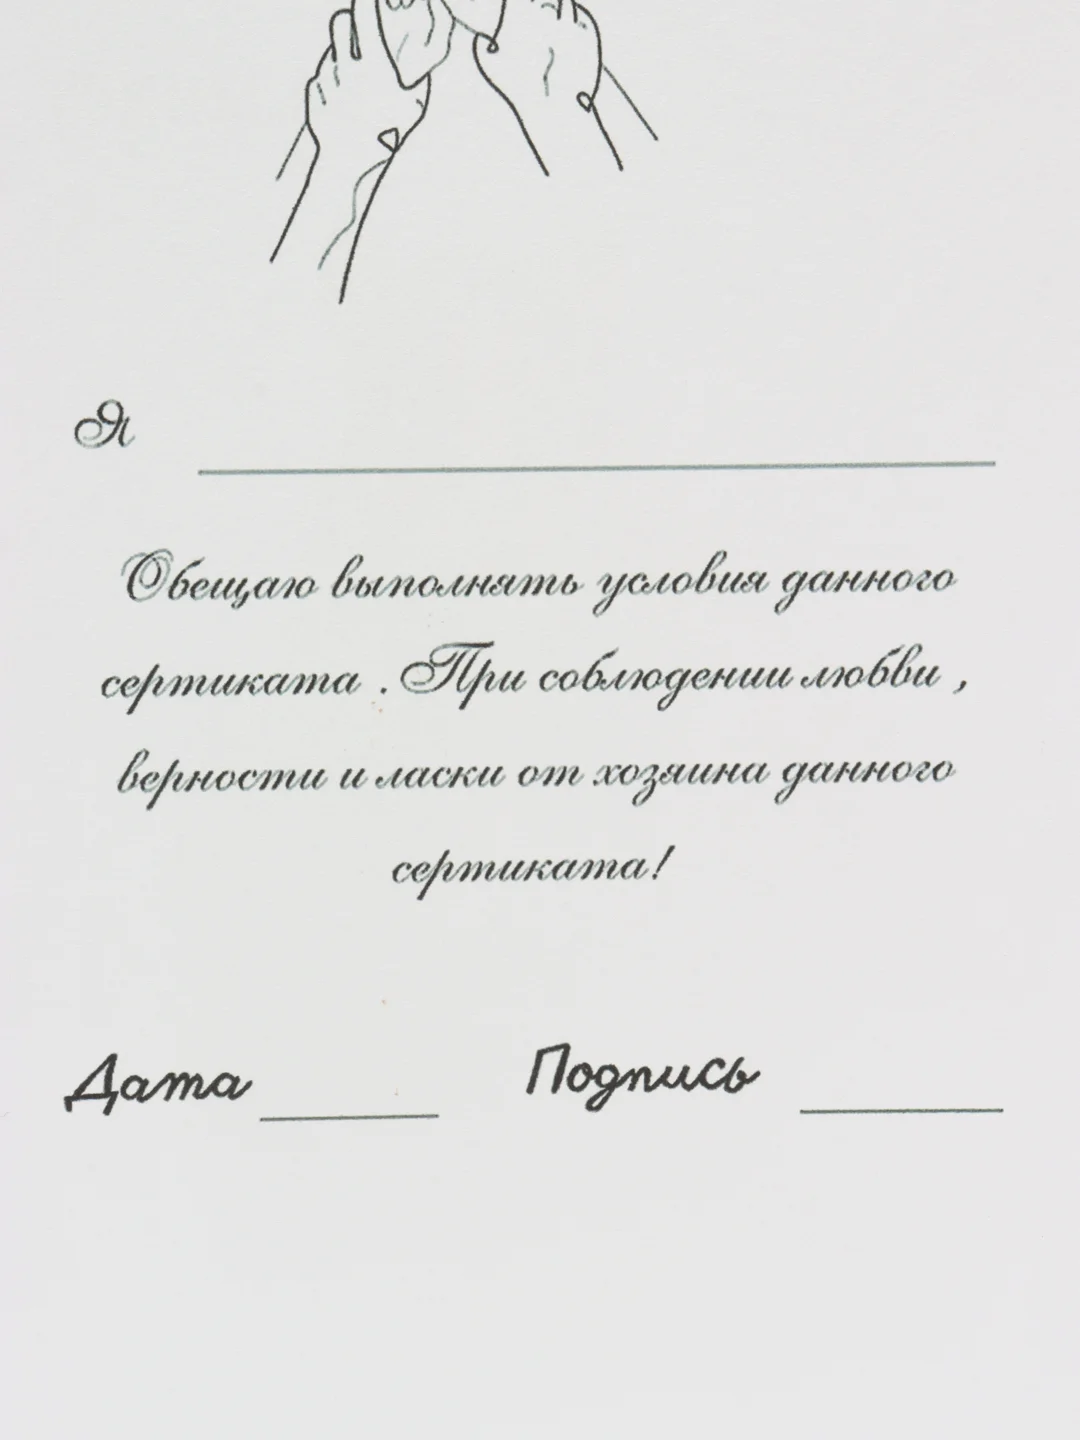 Я
Обещаю выполнять условия данного
сертиката . При соблюдении любви ,
верности и ласки от хозяина данного
сертиката!
Дата Подпись